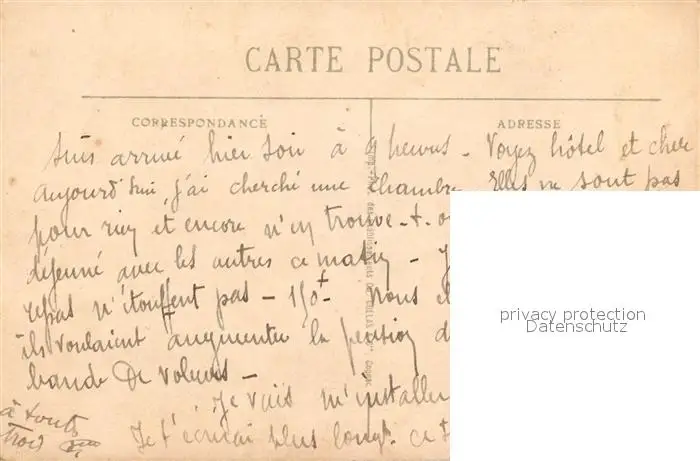 CARTE POSTALE
CORRESPONDANCE
ADRESSE
suis arrivé hier soir à 9 heures - Voyez hôtel et cher
aujourd'hui j'ai cherché une chambre Elles ne sont pas
pour rien et encore n'en trouve-t-o
déjeuné avec les autres ce matin - J
repas n'étouffent pas - 150f - Nous
ils voulaient augmenter la pension d
bande De voleurs -
Je vais m'installer
Je t'écrirai plus longt. ce
à tous
trois
privacy protection
Datenschutz